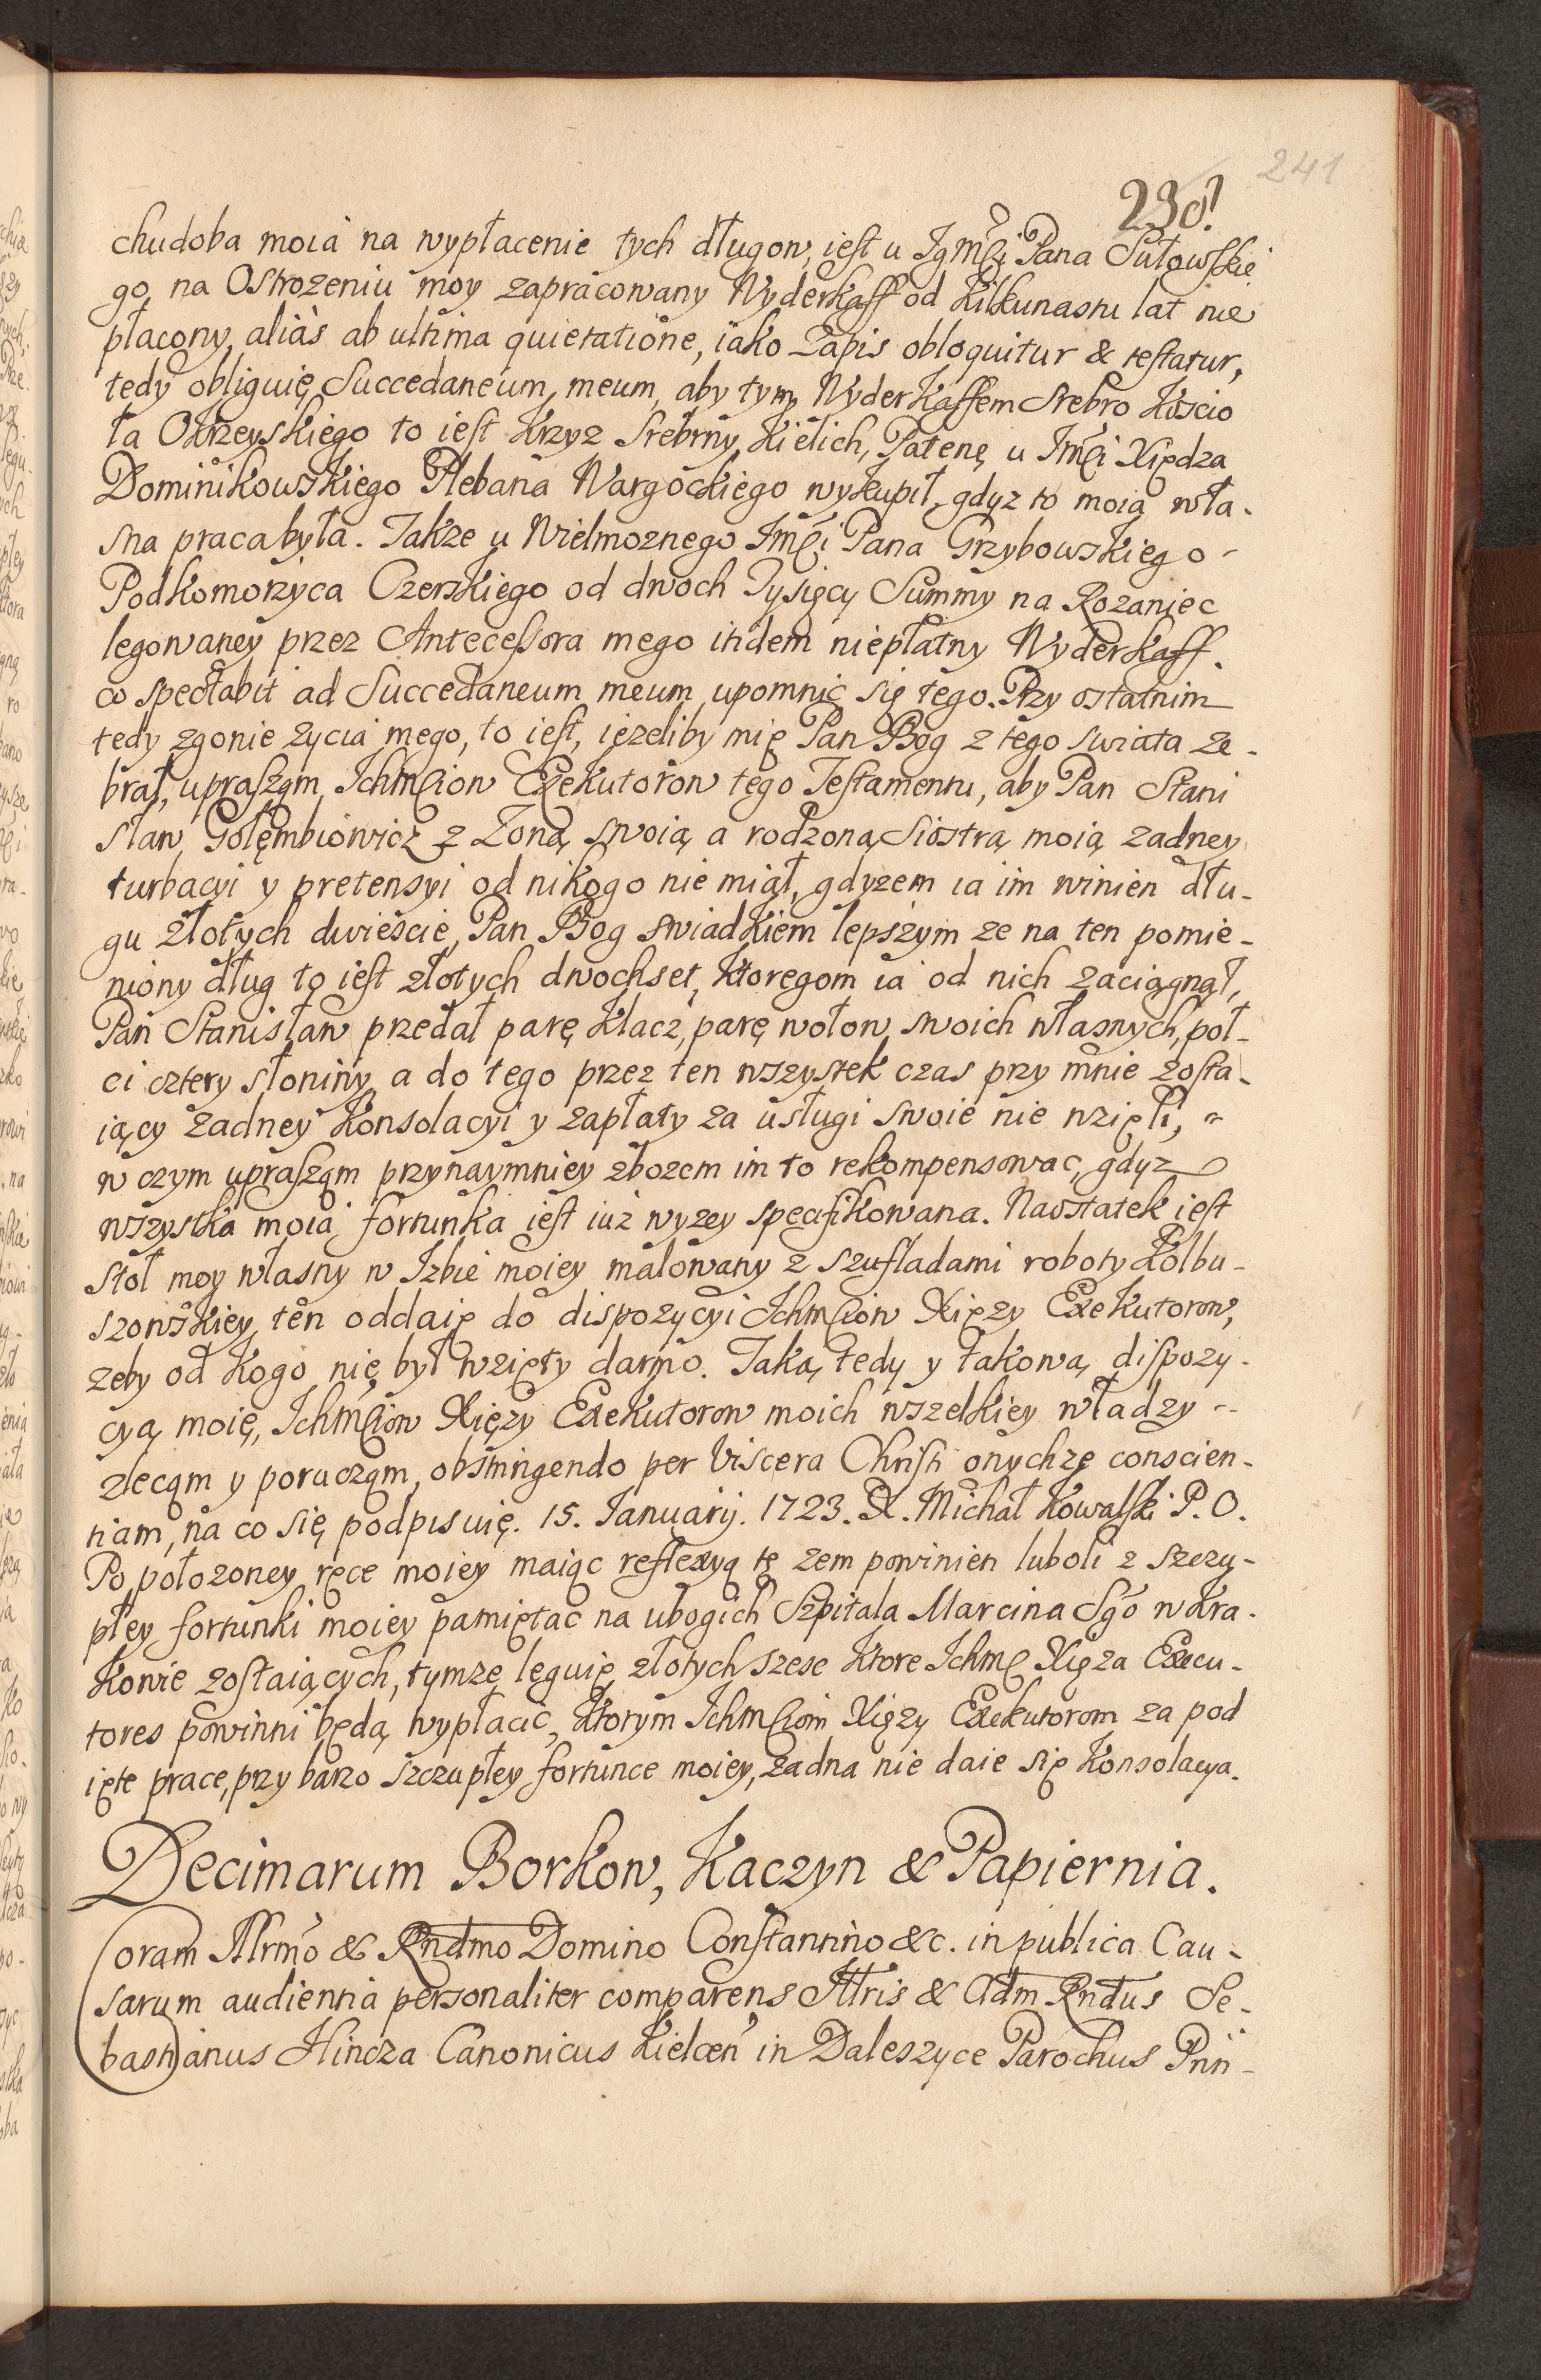 241
230
chudoba moia na wypłacenie tych długow, iest u JgmŚCi Pana Sułowskie
go na Ostrozeniu moy zapracowany Wyderkaff od kilkunastu lat nie
płacony, alias ab ultima quietatione, iako Zapis obloquitur & testatur,
tedy obliguię Succedaneum meum, aby tym Wyderkaffem Srebro kościo
ła Okrzeyskiego to iest Krzyz Srebrny, Kielich, Patenę u JmCi Xiędza
Dominikowskiego Plebana Wargockiego wykupił, gdyz to moia wła-
sna praca była. Także u Wielmoznego JmCi Pana Grzybowskiego
Podkomorzyca Czerskiego od dwoch Tysięcy Summy na Rozaniec
legowaney przez Antecessora mego itidem niepłatny Wyderkaff.
co spectabit ad Succedaneum meum upomnić się tego. Przy ostatnim
tedy zgonie zycia mego, to iest, iezeliby mię Pan Bog z tego swiata ze-
brał, upraszam Ichmciow Exekutorow tego Testamentu, aby Pan Stani
sław Gołębiowicz z Zoną swoią a rodzoną Siostrą moią zadney
turbacyi y pretensyi od nikogo nie miał, gdyzem ia im winien dłu-
gu złotych dwieście, Pan Bog swiadkiem lepszym ze na ten pomie-
niony dług to iest złotych dwochset, ktoregom ia od nich zaciągnął,
Pan Stanisław przedał parę klacz, parę wołow swoich własnych, poł-
ci cztery słoniny, a do tego przez ten wszystek czas przy mnie zosta-
iący żadney konsolacyi y zapłaty za usługi swoie nie wzięli,
w czym upraszam przynaymniey zbozem im to rekompensować, gdyz
wszystka moia fortunka iest iuż wyzey specifikowana. Naostatek iest
stoł moy własny w Izbie moiey malowany z szufladami roboty Kolbu-
szowskiey, ten oddaię do dispozycyi Ichmciow Xięzy Exekutorow,
zeby od kogo nie był wzięty darmo. Taką tedy y takową dispozy-
cyą moię, Ichmciow Xięzy Exekutorow moich wszelkiey władzy
zlecam y poruczam, obstringendo per Viscera Christi onychze conscien-
tiam, na co się podpisuię. 15. Januarij. 1723. X. Michał Kowalski P. O.
Po położoney ręce moiey maiąc reflexyą tę zem powinien luboli z szczy-
płey fortunki moiey pamiętac na ubogich Szpitala Marcina Sgo w Kra-
kowie zostaiących, tymze leguię złotych szesc ktore Ichmc Xięza Execu-
tores powinni będą wypłacić, Ktorym Ichmciom Xięzy Exekutorom za pod
ięte prace, przy barzo szczupłey fortunce moiey, żadna nie daie się konsolacya.
Decimarum Borkow, Kaczyn & Papiernia.
Coram Illrmo & Rndmo Domino Constantino &c. in publica Cau-
sarum audientia personaliter comparens Illtris & Adm Rndus Se-
bastianus Hincza Canonicus Kielcen in Daleszyce Parochus Prin-